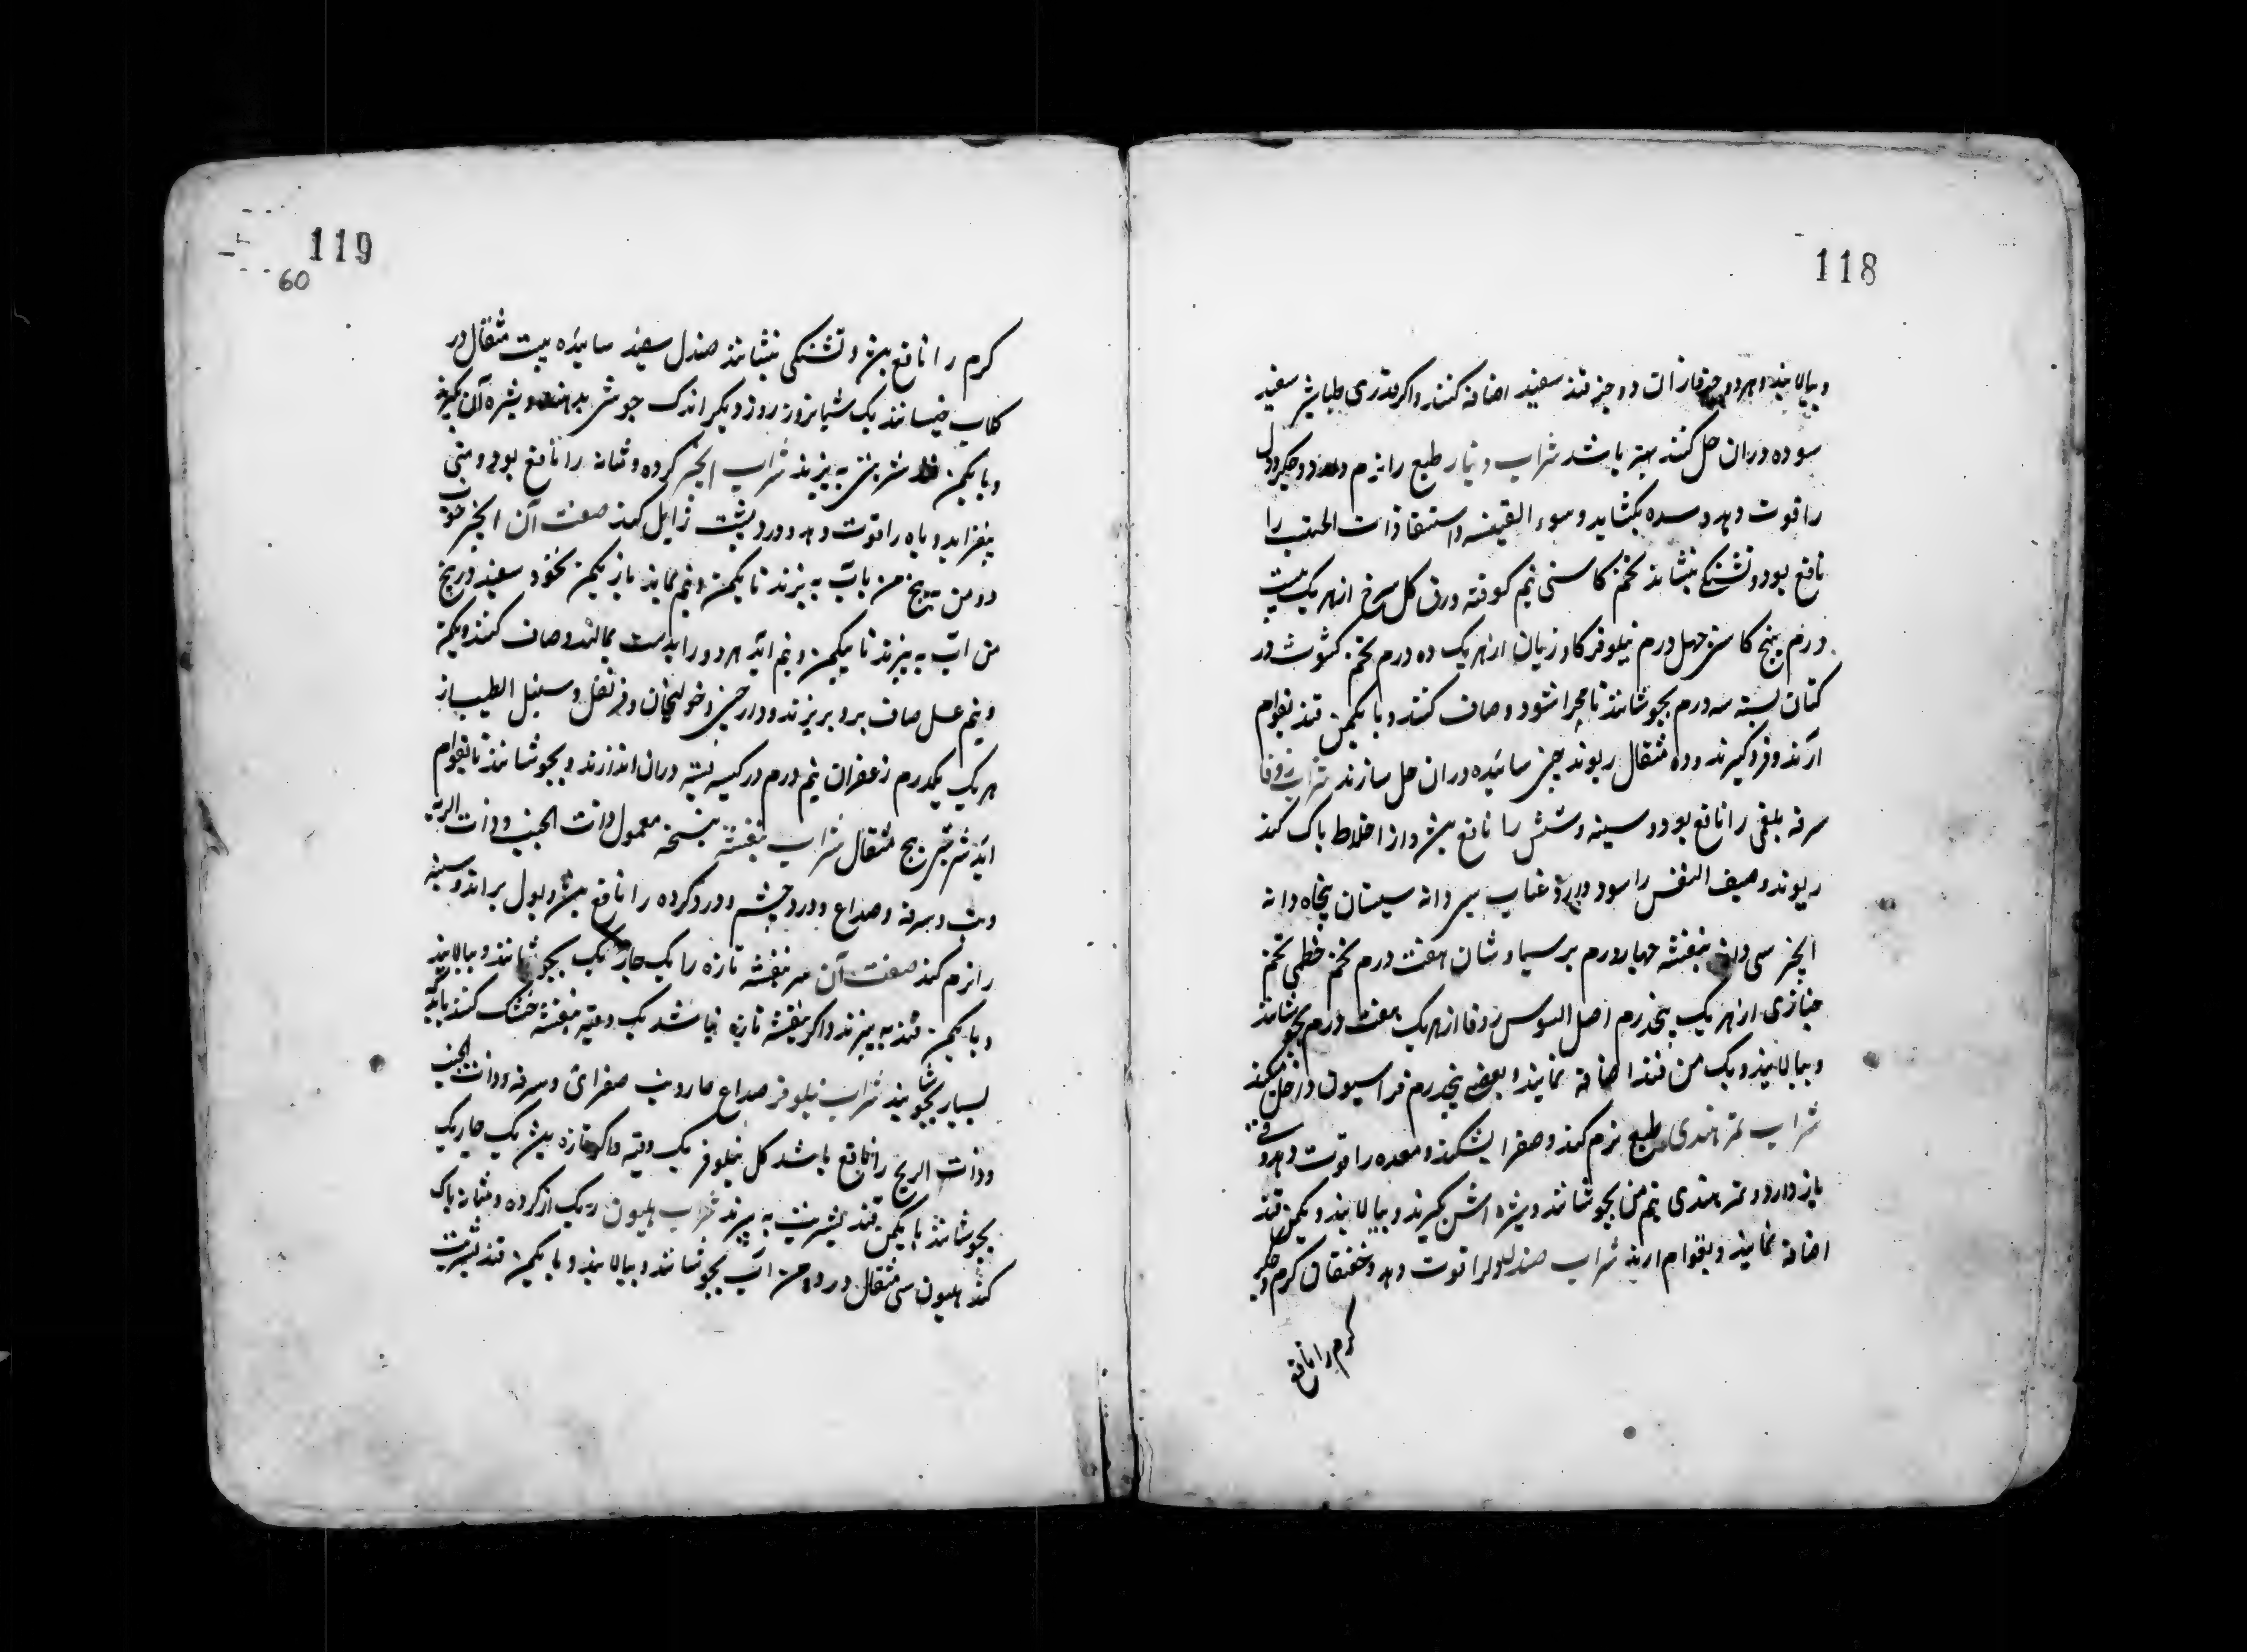 118
وبپالایند و هر دو جز ازان دو جز قند سفید اضافه کنند و اکر قدری طباشیر سفید
سوده دران حل کنند بهتر باشد شراب دینار طبع را نرم دهد و جکر و دل
را قوت دهد و سده بکشاید و سوء القنیه و استسقا ذات الجنب را
نافع بود و تشنکی بنشاند تخم کاسنی نیم کوفته ورق کل سرخ ازهر یک بیست
درم بیخ کاسنی چهل درم نیلوفر کاو زبان ازهر یک ده درم تخم کشوث در
کتان بسته سه درم بجوشانند تا مهرا شود و صاف کنند و با یکمن قند بقوام
آرند و فرو کیرند و ده مثقال ریوند چینی سائیده دران حل سازند شراب زوفا
سرفه بلغمی را نافع بود و سینه و شش را نافع بش و از اخلاط پاک کند
ربو و ضیق النفس را سود دارد عناب سی دانه سپستان پنجاه دانه
انجیر سی دانه بنفشه چهار درم پرسیاوشان هفت درم تخم خطمی تخم
خبازی ازهر یک پنجدرم اصل السوس زوفا ازهر یک هفت درم بجوشانند
و بپالایند و یک من قند اضافه نمایند و بعضی پنجدرم فراسیون داخل میکنند
شراب تمر هندی طبع نرم کند و صفرا بشکند و معده را قوت دهد و قی
باز دارد و تمر هندی نیم من بجوشانند و شیره اش بکیرند و بپالایند و یکمن قند
اضافه نمایند و بقوام ارند شراب صندل دلرا قوت دهد و خفقان کرم و جکر
کرم را نافع
119
60
کرم را نافع بش و تشنکی بنشاند صندل سفید سائیده بیست مثقال در
کلاب خیسانند یک شبانروز روز دیکر اندک جوشی بدهند و شیره آن بکیرند
و با یکمن قند شربتی به پزند شراب انجیر کرده و مثانه را نافع بود و منی
بیفزاید و باه را قوت دهد و درد پشت زایل کند صفت آن انجیر خوب
دو من در پنج من باب به پزند تا یکمن و نیم بماند باز یکمن نخود سفید در پنج
من اب به پزند تا بیکمن و نیم آید هر دو را بدست بمالند و صاف کنند و یکمن
و نیم عسل صاف برو بریزند و دارچینی و خولنجان و قرنفل و سنبل الطیب از
هر یک یکدرم زعفران نیم درم در کیسه بسته دران اندازند و بجوشانند تا بقوام
اید شربتی پنج مثقال شراب بنفشه بنسخه معمول ذات الجنب و ذات الریه
وتب و سرفه و صداع و درد چشم و درد کرده را نافع بش و بول براند و سینه
را نرم کند صفت آن سر بنفشه تازه را یک چاریک بجوشانند و بپالایند
و با یکمن قند به پزند و اکر بنفشه تازه نباشد یک وقیه بنفشه خشک کنند بآنکه
بسیار بجوشانند شراب نیلوفر صداع حار و تب صفرائی و سرفه و ذات الجنب
و ذات الریه را نافع باشد کل نیلوفر یک وقیه و اکر تازه بش یک چاریک
بجوشانند با یکمن قند بشربت به پزند شراب هلیون ریک از کرده و مثانه پاک
کند هلیون سی مثقال در دو من آب بجوشانند و بپالایند و با یکمن قند بشربت